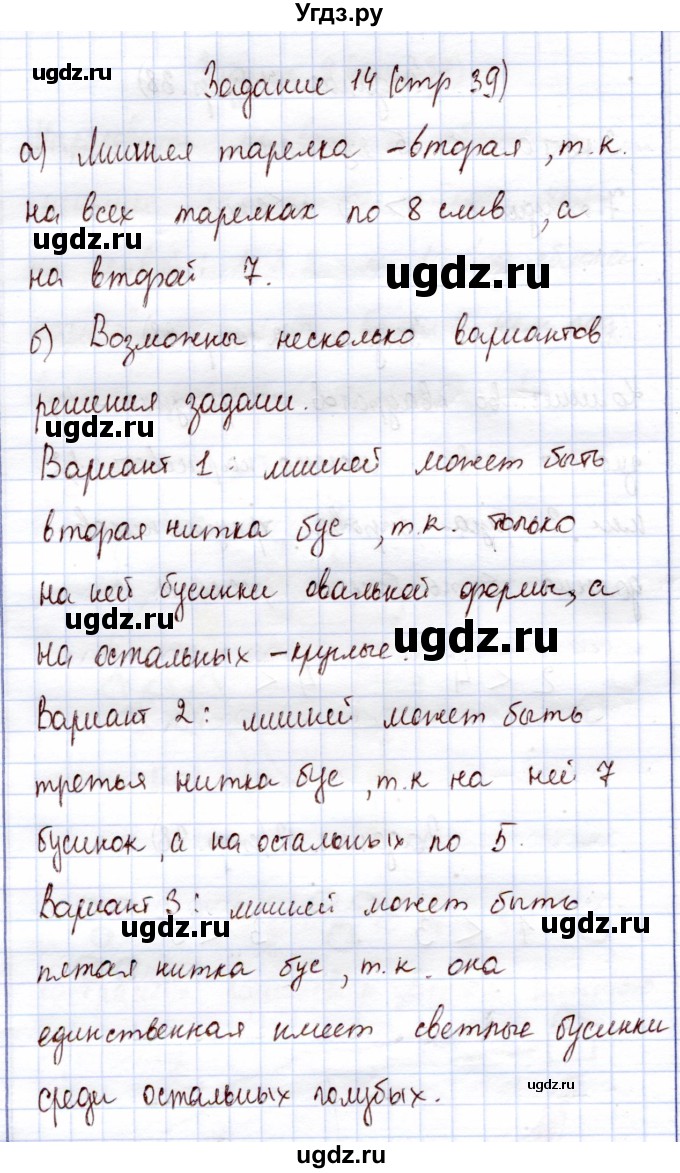 Угдз.ру
ugdz.ru
Задание 14 (стр 39)
а) Лишняя тарелка - вторая, т.к.
на всех тарелках по 8 слив, а
ugdz.ru
ugdz.ru
на второй 7.
б) Возможны несколько вариантов
решения задачи.
ugdz.ru
Вариант 1: лишней может быть
вторая нитка бус, т.к. только
на ней бусинки овальной формы, а
ugdz.ru
ugdz.ru
на остальных - круглые.
Вариант 2: лишней может быть
третья нитка бус, т.к на ней 7
бусинок, а на остальных по 5.
Вариант 3: лишней может быть
ugdz.ru
ugdz.ru
пятая нитка бус, т.к. она
единственная имеет светлые бусинки
среди остальных голубых.
ugdz.ru
ugdz.ru